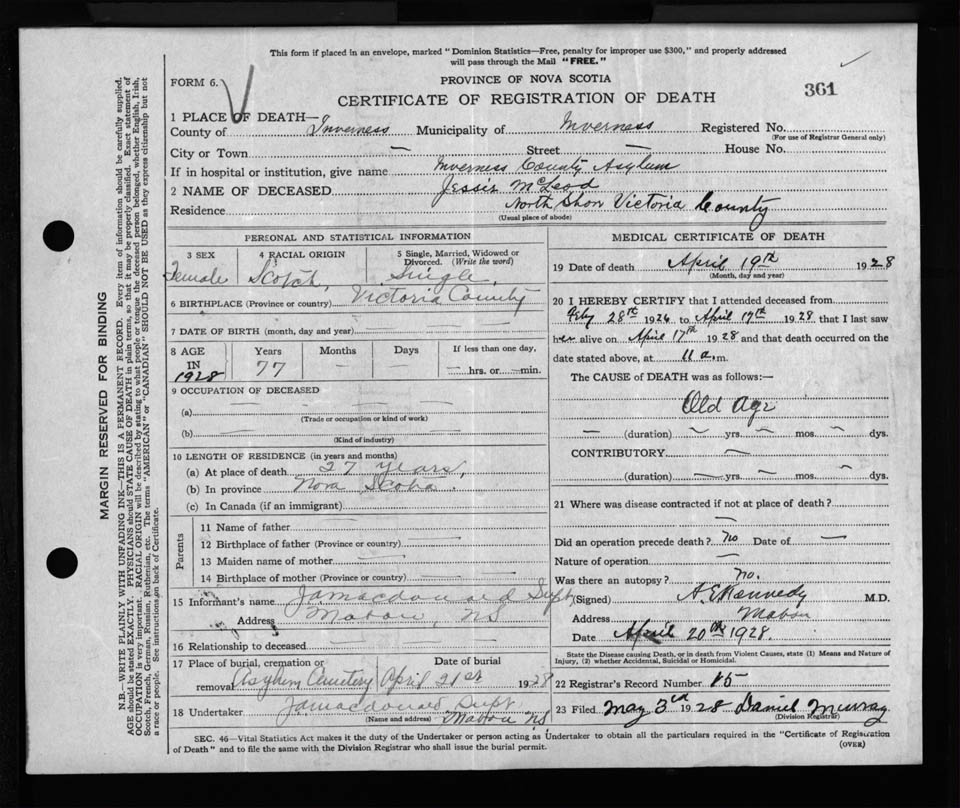 This form if placed in an envelope, marked "Dominion Statistics—Free, penalty for improper use $300," and properly addressed
will pass through the Mail "FREE."
FORM 6.
PROVINCE OF NOVA SCOTIA
361
CERTIFICATE OF REGISTRATION OF DEATH
1 PLACE OF DEATH—
County of Inverness Municipality of Inverness Registered No.
(For use of Registrar General only)
City or Town — Street — House No.
If in hospital or institution, give name Inverness County Asylum
2 NAME OF DECEASED Jessie McLeod
Residence North Shore Victoria County
(Usual place of abode)
PERSONAL AND STATISTICAL INFORMATION
3 SEX 4 RACIAL ORIGIN 5 Single, Married, Widowed or Divorced. (Write the word)
Female Scotch, Single,
6 BIRTHPLACE (Province or country) Victoria County
7 DATE OF BIRTH (month, day and year) — — —
8 AGE Years Months Days If less than one day,
IN 1928 77 — — — hrs. or — min.
9 OCCUPATION OF DECEASED
(a) — —
(Trade or occupation or kind of work)
(b) — —
(Kind of industry)
10 LENGTH OF RESIDENCE (in years and months)
(a) At place of death 27 years,
(b) In province Nova Scotia.
(c) In Canada (if an immigrant)
Parents
11 Name of father
12 Birthplace of father (Province or country)
13 Maiden name of mother
14 Birthplace of mother (Province or country)
15 Informant's name Jamacdonald Supt
Address Mabou, NS
16 Relationship to deceased
17 Place of burial, cremation or Date of burial
removal Asylum Cemetery April 21st 1928
18 Undertaker Jamacdonald Supt
(Name and address) Mabou NS
MEDICAL CERTIFICATE OF DEATH
19 Date of death April 19th 1928
(Month, day and year)
20 I HEREBY CERTIFY that I attended deceased from
Feby 28th 1926 to April 17th 1928 that I last saw
her alive on April 17th 1928 and that death occurred on the
date stated above, at 11 a.m.
The CAUSE of DEATH was as follows:—
Old Age
— (duration) — yrs. — mos. — dys.
CONTRIBUTORY —
(duration) — yrs. — mos. — dys.
21 Where was disease contracted if not at place of death?
—
Did an operation precede death? No Date of —
Nature of operation —
Was there an autopsy? no.
(Signed) A E Kennedy M.D.
Address Mabou
Date April 20th 1928.
State the Disease causing Death, or in death from Violent Causes, state (1) Means and Nature of
Injury, (2) whether Accidental, Suicidal or Homicidal.
22 Registrar's Record Number 15
23 Filed May 3rd 1928 Daniel Murray
(Division Registrar)
SEC. 46—Vital Statistics Act makes it the duty of the Undertaker or person acting as Undertaker to obtain all the particulars required in the "Certificate of Registration
of Death" and to file the same with the Division Registrar who shall issue the burial permit.
(OVER)
MARGIN RESERVED FOR BINDING
N.B.—WRITE PLAINLY WITH UNFADING INK—THIS IS A PERMANENT RECORD. Every item of information should be carefully supplied.
AGE should be stated EXACTLY. PHYSICIANS should STATE CAUSE OF DEATH in plain terms, so that it may be properly classified. Exact statement of
OCCUPATION is very important. RACIAL ORIGIN will be described by stating to what people or tongue the deceased person belonged, whether English, Irish,
Scotch, French, German, Russian, Ruthenian, etc. The terms "AMERICAN" or "CANADIAN" SHOULD NOT BE USED as they express citizenship but not
a race or people. See instructions on back of Certificate.